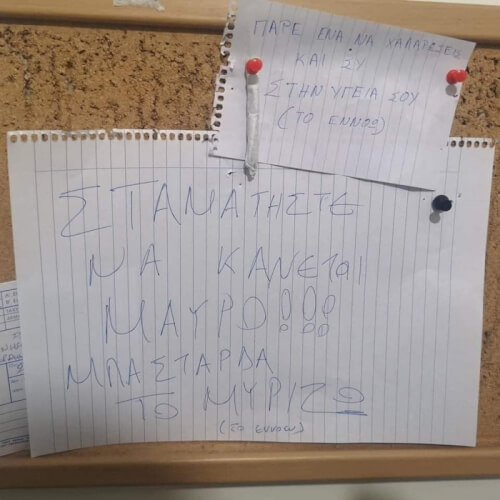 ΠΑΡΕ ΕΝΑ ΝΑ ΧΑΛΑΡΕΣΕΙΣ
ΚΑΙ ΣΥ
ΣΤΗΝ ΥΓΕΙΑ ΣΟΥ
(ΤΟ ΕΝΝΟΩ)
ΣΤΑΜΑΤΗΣΤΕ
ΝΑ ΚΑΝΕΤαι
ΜΑΥΡΟ!!!
ΜΠΑΣΤΑΡΔΑ
ΤΟ ΜΥΡΙΖΩ
(το εννοω)